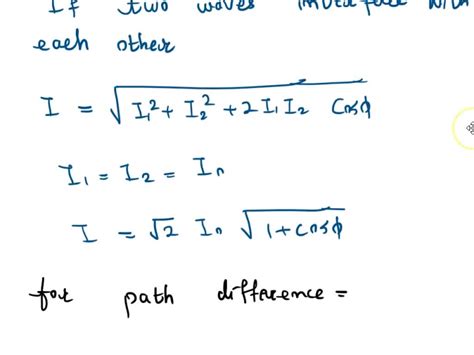 If two waves interfere with
each other
I = √(I₁² + I₂² + 2I₁I₂ Cosϕ)
I₁ = I₂ = Iₙ
I = √2 Iₙ √(1 + cosϕ)
for path difference =